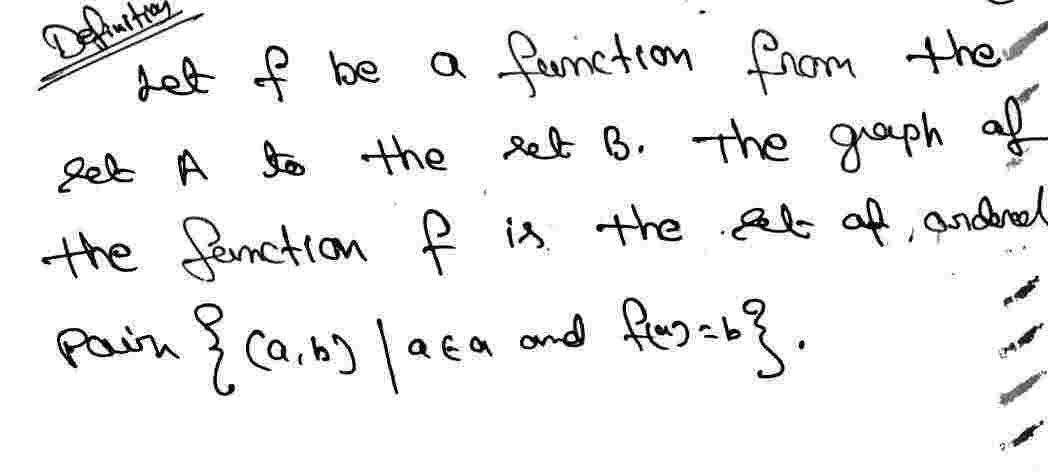 Definition
Let f be a function from the
set A to the set B. The graph of
the function f is the set of ordered
pair {(a,b) | a ∈ a and f(a) = b}.